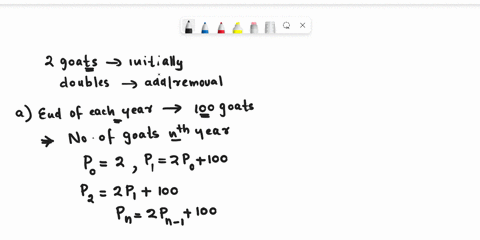 2 goats → initially
doubles → add/removal
a) End of each year → 100 goats
⇒ No. of goats nth year
P₀ = 2 , P₁ = 2P₀+100
P₂ = 2P₁ + 100
Pₙ = 2Pₙ₋₁ + 100